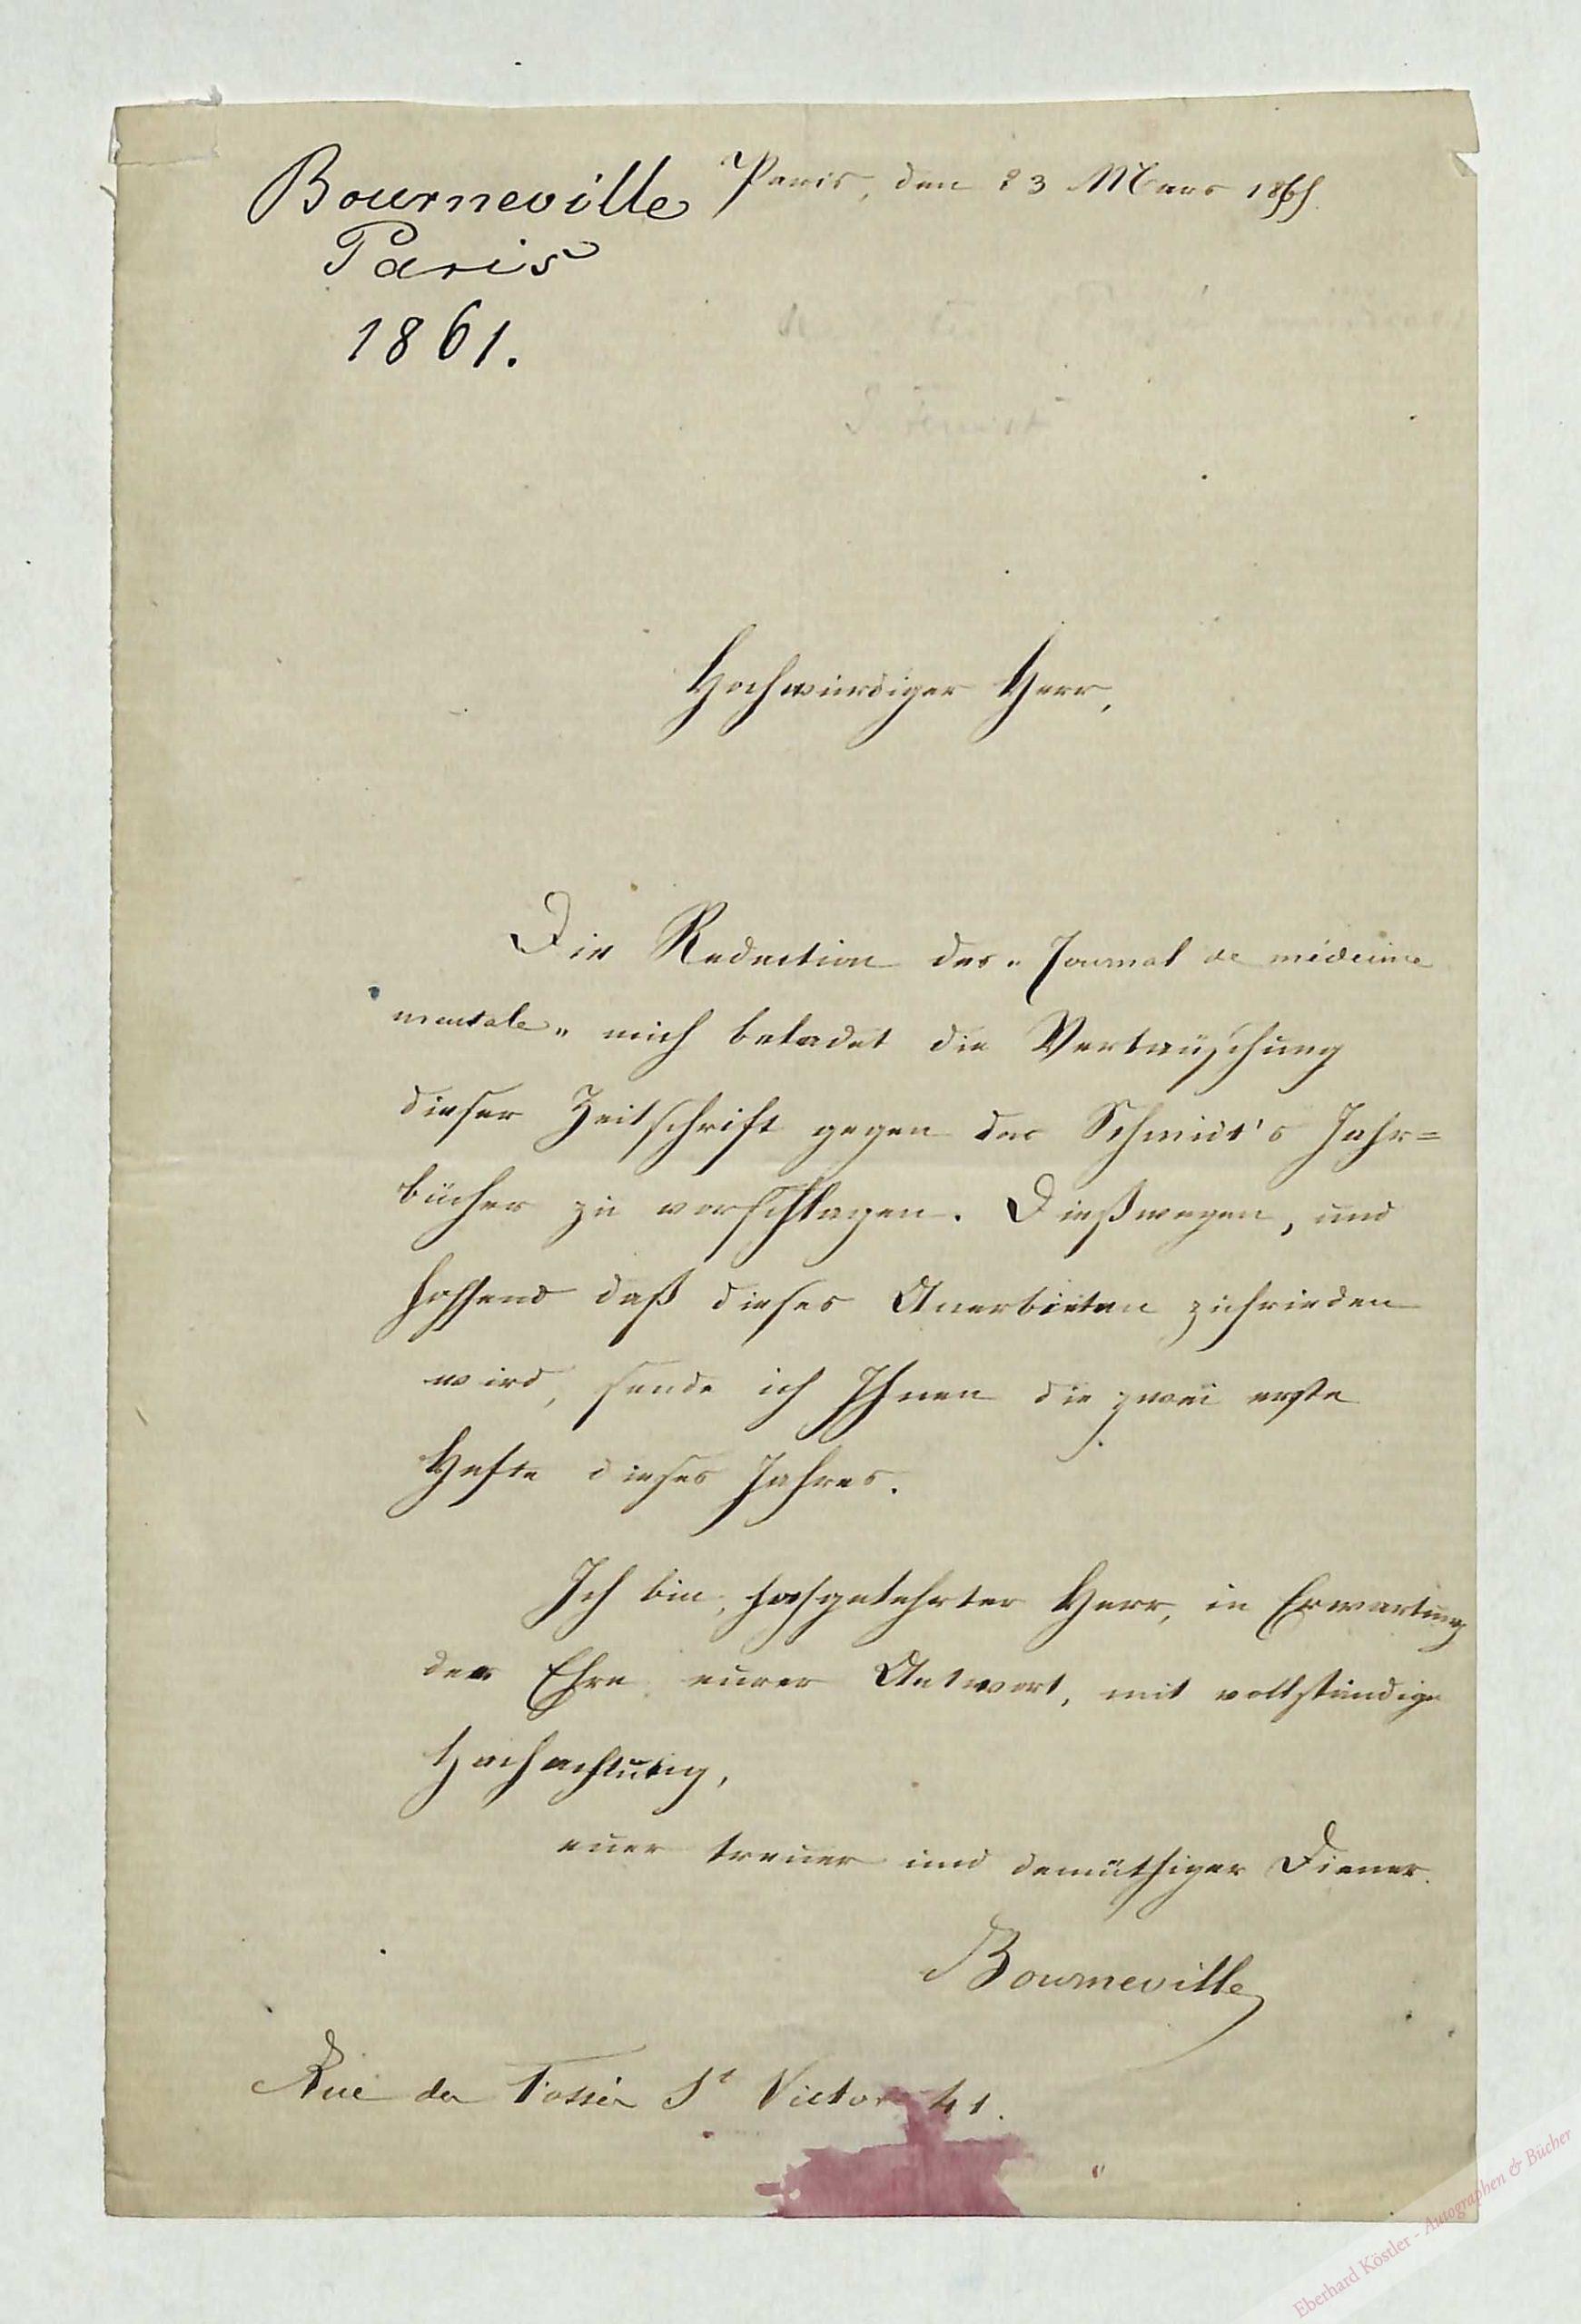 Bourneville
Paris
1861.
Paris, den 23 Mars 1861.
Hochwürdiger Herr,
Die Redaction des „Journal de médecine
mentale„ mich beladet die Vertauschung
dieser Zeitschrift gegen das Schmidt's Jahr=
bücher zu vorschlagen. Dießwegen, und
hoffend daß dieses Anerbieten zufrieden
wird, sende ich Ihnen die zwei erste
Hefte dieses Jahres.
Ich bin, hochgelehrter Herr, in Erwartung
der Ehre eurer Antwort, mit vollständige
Hochachtung,
euer treuer und demüthiger Diener.
Bourneville
Rue des Fossés St Victor 41.
Eberhard Köstler - Autographen & Bücher